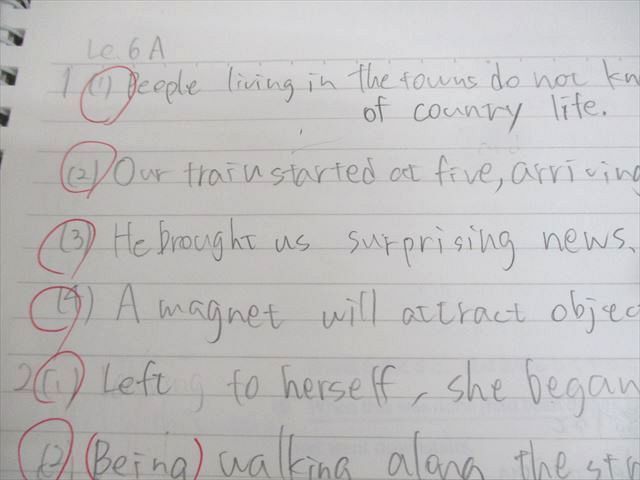 Le. 6 A
1 (1) People living in the towns do not kn
of counry life.
(2) Our train started at five, arriving
(3) He brought us surprising news.
(4) A magnet will attract objec
2 (1) Left to herself, she began
(2) (Being) walking along the str